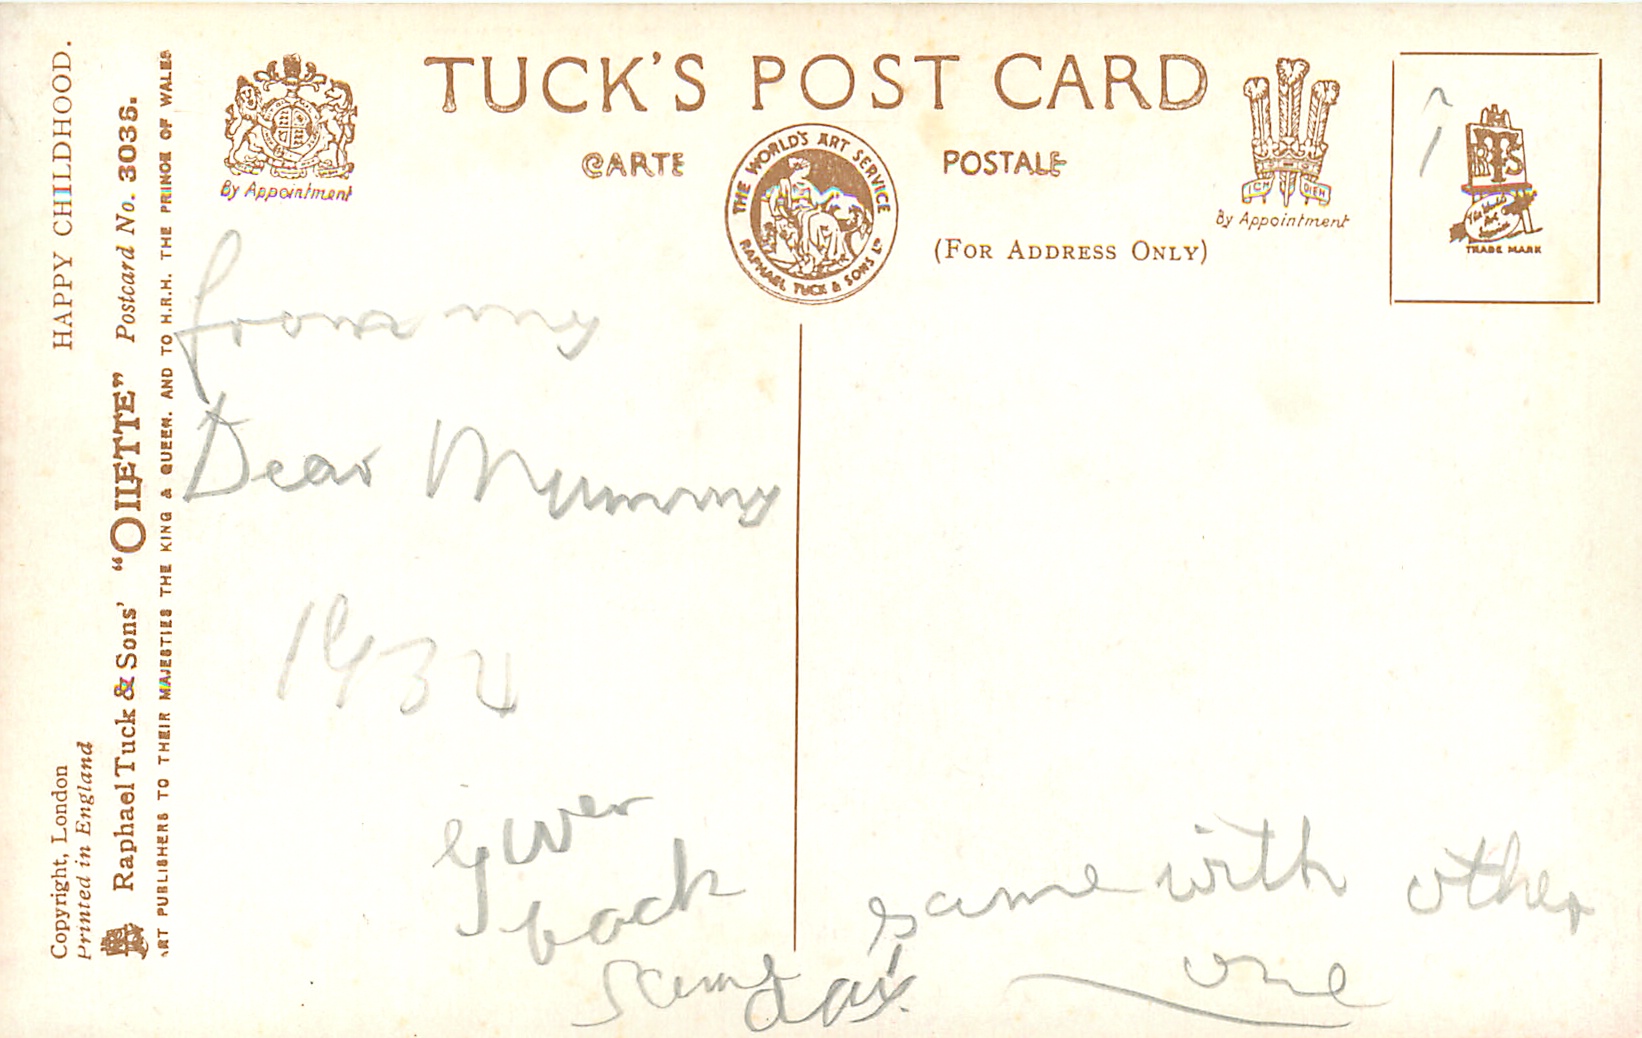 TUCK'S POST CARD
CARTE POSTALE
(FOR ADDRESS ONLY)
By Appointment
THE WORLD'S ART SERVICE
RAPHAEL TUCK & SONS LTD
ICH DIEN
By Appointment
ARTS
The World's Art Service
TRADE MARK
HAPPY CHILDHOOD.
Copyright, London
Printed in England
Raphael Tuck & Sons' "OILETTE" Postcard No. 3036.
ART PUBLISHERS TO THEIR MAJESTIES THE KING & QUEEN. AND TO H.R.H. THE PRINCE OF WALES
from my
Dear Mummy
1934
Given
back
same day.
same with other
one